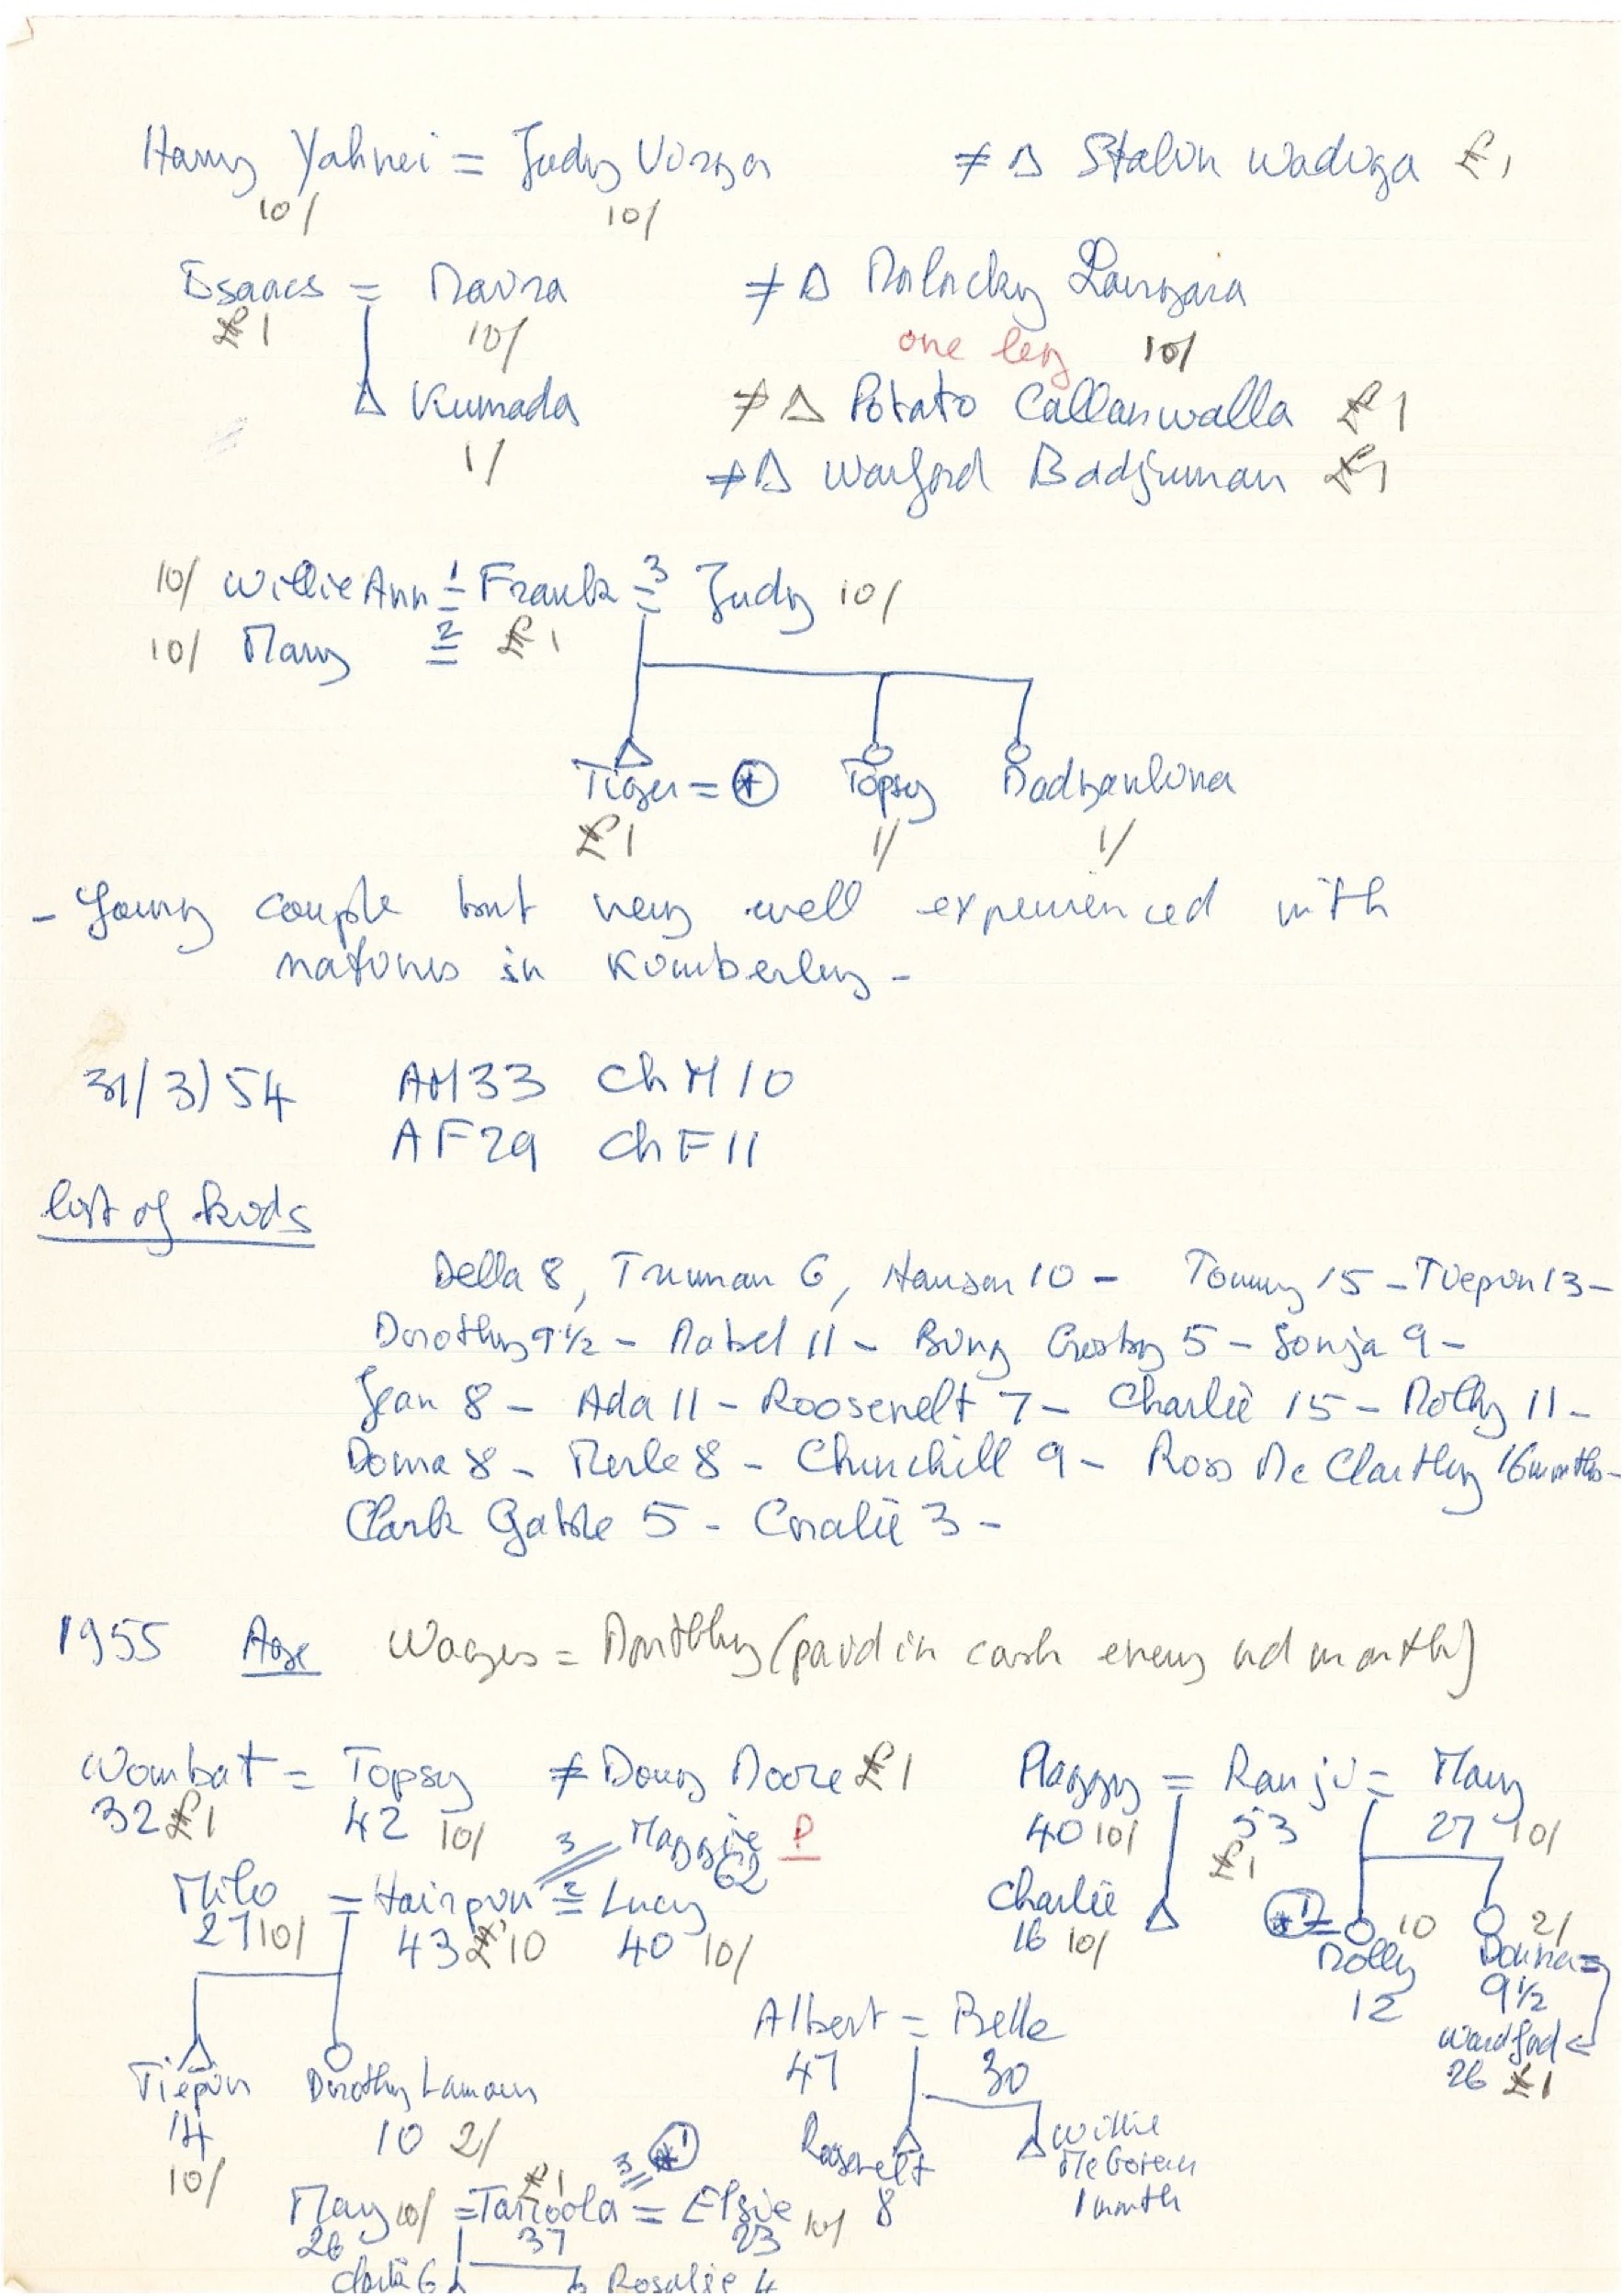 Harry Yahnei = Judy Virga ≠ Δ Stalin Wadiga £1
10/ 10/
Isaacs = Maira ≠ Δ Malacky Langara
£1 10/ one leg 10/
Δ Kumada ≠ Δ Potato Callanwalla £1
1/ ≠ Δ Warford Badjuman £1
10/ Willie Ann 1= Frank 3= Judy 10/
10/ Mary 2= £1
Tiger = * Topsy Madyanlina
£1 1/ 1/
- Young couple but very well experienced with
natives in Kimberley -
31/3/54 AM33 ChM10
AF29 ChF11
list of kids
Della 8, Truman 6, Hanson 10 - Tommy 15 - Tiepin 13 -
Dorothy 9½ - Mabel 11 - Bing Crosby 5 - Sonja 9 -
Jean 8 - Ada 11 - Roosevelt 7 - Charlie 15 - Molly 11 -
Donna 8 - Merle 8 - Churchill 9 - Ross McClarthy 16 months -
Clark Gable 5 - Coralie 3 -
1955 Age Wages = Monthly (paid in cash every 2d month)
Wombat = Topsy ≠ Doug Moore £1 Maggy = Ranji = Mary
32 £1 42 10/ 40 10/ 53 £1 27 10/
3 Maggie P
62
Milo = Hairpin 2= Lucy Charlie Δ *1 =
27 10/ 43 £1 10 40 10/ 16 10/ 10 2/
Molly Donna =
12 9½
Albert = Belle Wardford
47 30 26 £1
Tiepin Dorothy Lamour
14 10 2/
10/
Roosevelt Willie
8 McGoven
1 month
May 10/ = Tarioola = Elsie 10/
26 £1 37 3= *1 23
6 Rosalie 4